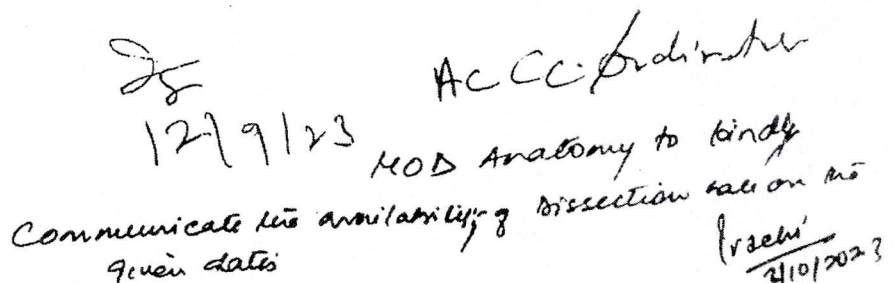 12/9/23
ACC Co-ordinator
HOD Anatomy to kindly
Communicate the availability of Dissection hall on the
given dates
Prachi
2/10/2023